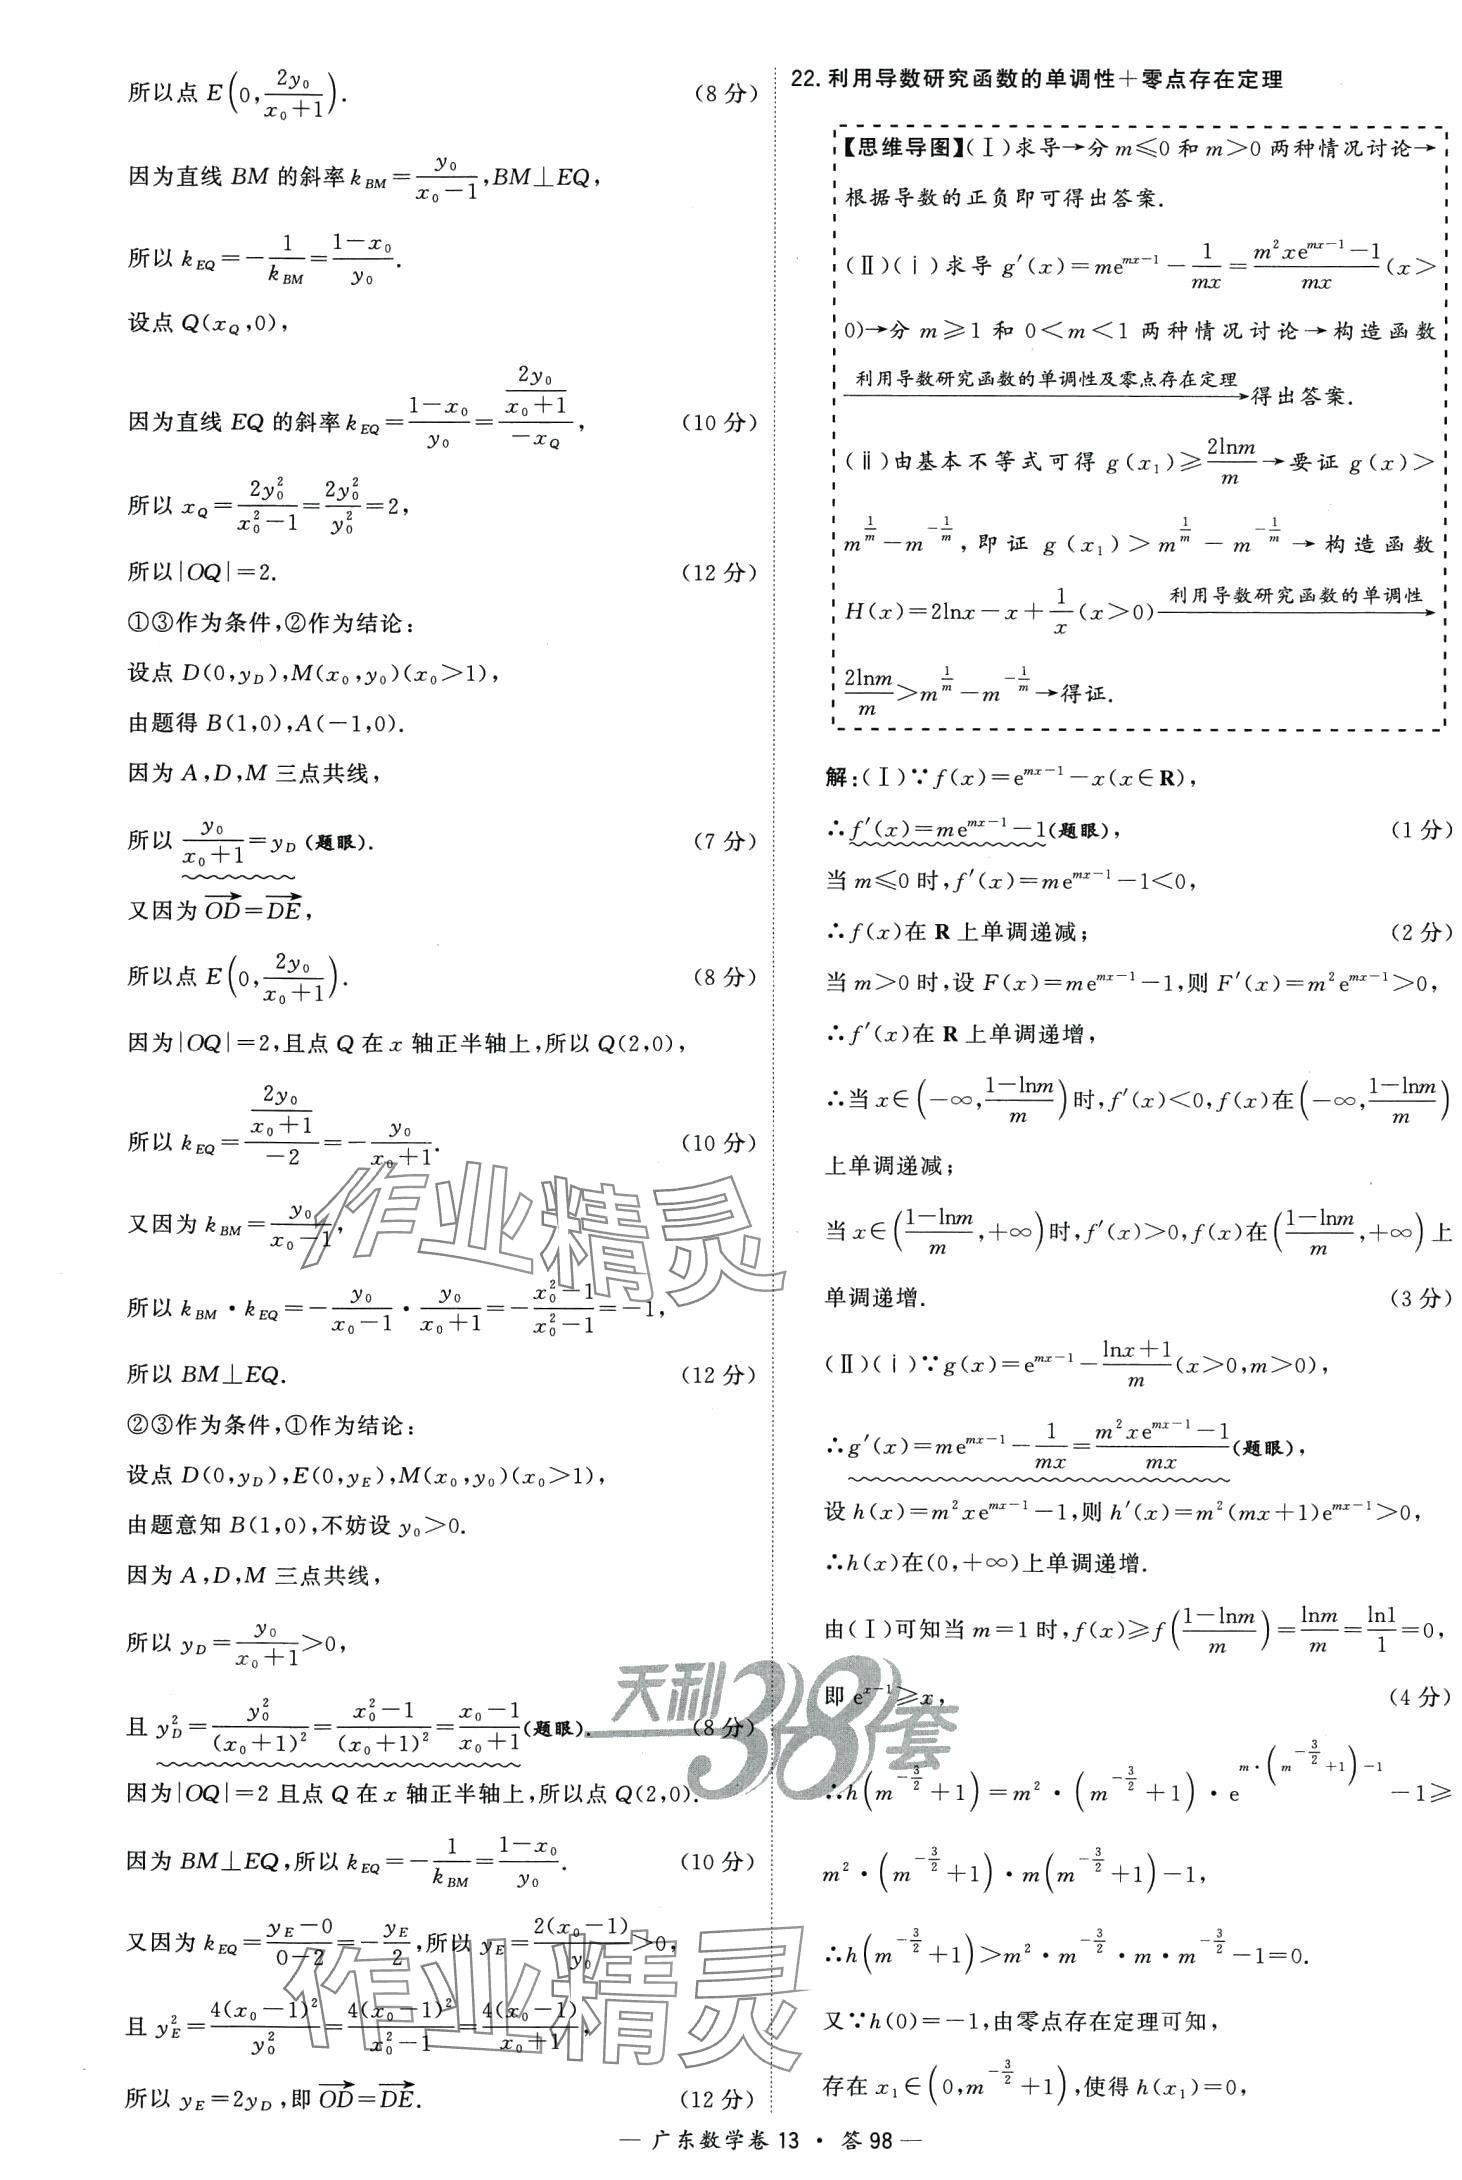 所以点 E(0, 2y₀/(x₀+1)). (8 分)
因为直线 BM 的斜率 k_BM = y₀/(x₀-1), BM⊥EQ,
所以 k_EQ = -1/k_BM = (1-x₀)/y₀.
设点 Q(x_Q,0),
因为直线 EQ 的斜率 k_EQ = (1-x₀)/y₀ = (2y₀/(x₀+1))/(-x_Q), (10 分)
所以 x_Q = 2y₀²/(x₀²-1) = 2y₀²/y₀² = 2,
所以|OQ|=2. (12 分)
①③作为条件,②作为结论:
设点 D(0,y_D),M(x₀,y₀)(x₀>1),
由题得 B(1,0),A(-1,0).
因为 A,D,M 三点共线,
所以 y₀/(x₀+1) = y_D (题眼). (7 分)
又因为 \overrightarrow{OD}=\overrightarrow{DE},
所以点 E(0, 2y₀/(x₀+1)). (8 分)
因为|OQ|=2,且点 Q 在 x 轴正半轴上,所以 Q(2,0),
所以 k_EQ = (2y₀/(x₀+1))/(-2) = -y₀/(x₀+1). (10 分)
又因为 k_BM = y₀/(x₀-1),
所以 k_BM · k_EQ = -y₀/(x₀-1) · y₀/(x₀+1) = -(x₀²-1)/(x₀²-1) = -1,
所以 BM⊥EQ. (12 分)
②③作为条件,①作为结论:
设点 D(0,y_D),E(0,y_E),M(x₀,y₀)(x₀>1),
由题意知 B(1,0),不妨设 y₀>0.
因为 A,D,M 三点共线,
所以 y_D = y₀/(x₀+1) > 0,
且 y_D² = y₀²/(x₀+1)² = (x₀²-1)/(x₀+1)² = (x₀-1)/(x₀+1) (题眼). (8 分)
因为|OQ|=2 且点 Q 在 x 轴正半轴上,所以点 Q(2,0).
因为 BM⊥EQ,所以 k_EQ = -1/k_BM = (1-x₀)/y₀. (10 分)
又因为 k_EQ = (y_E-0)/(0-2) = -y_E/2,所以 y_E = 2(x₀-1)/y₀ > 0,
且 y_E² = 4(x₀-1)²/y₀² = 4(x₀-1)²/(x₀²-1) = 4(x₀-1)/(x₀+1),
所以 y_E=2y_D,即 \overrightarrow{OD}=\overrightarrow{DE}. (12 分)
22. 利用导数研究函数的单调性+零点存在定理
【思维导图】(Ⅰ)求导→分 m⩽0 和 m>0 两种情况讨论→
根据导数的正负即可得出答案.
(Ⅱ)(ⅰ)求导 g′(x)=me^{mx-1} - 1/(mx) = (m²xe^{mx-1}-1)/(mx) (x>
0)→分 m⩾1 和 0<m<1 两种情况讨论→构造函数
利用导数研究函数的单调性及零点存在定理→得出答案.
(ⅱ)由基本不等式可得 g(x₁)⩾2lnm/m→要证 g(x)>
m^{1/m}-m^{-1/m},即证 g(x₁)>m^{1/m}-m^{-1/m}→构造函数
H(x)=2lnx-x+1/x (x>0) 利用导数研究函数的单调性→
2lnm/m>m^{1/m}-m^{-1/m}→得证.
解:(Ⅰ)∵f(x)=e^{mx-1}-x(x∈R),
∴f′(x)=me^{mx-1}-1(题眼), (1 分)
当 m⩽0 时,f′(x)=me^{mx-1}-1<0,
∴f(x)在 R 上单调递减; (2 分)
当 m>0 时,设 F(x)=me^{mx-1}-1,则 F′(x)=m²e^{mx-1}>0,
∴f′(x)在 R 上单调递增,
∴当 x∈(-∞, (1-lnm)/m)时,f′(x)<0,f(x)在(-∞, (1-lnm)/m)
上单调递减;
当 x∈((1-lnm)/m, +∞)时,f′(x)>0,f(x)在((1-lnm)/m, +∞)上
单调递增. (3 分)
(Ⅱ)(ⅰ)∵g(x)=e^{mx-1} - (lnx+1)/m (x>0,m>0),
∴g′(x)=me^{mx-1} - 1/(mx) = (m²xe^{mx-1}-1)/(mx) (题眼),
设 h(x)=m²xe^{mx-1}-1,则 h′(x)=m²(mx+1)e^{mx-1}>0,
∴h(x)在(0,+∞)上单调递增.
由(Ⅰ)可知当 m=1 时,f(x)⩾f((1-lnm)/m)=lnm/m=ln1/1=0,
即 e^{x-1}⩾x, (4 分)
∴h(m^{-3/2}+1)=m²·(m^{-3/2}+1)·e^{m·(m^{-3/2}+1)-1}-1⩾
m²·(m^{-3/2}+1)·m(m^{-3/2}+1)-1,
∴h(m^{-3/2}+1)>m²·m^{-3/2}·m·m^{-3/2}-1=0.
又∵h(0)=-1,由零点存在定理可知,
存在 x₁∈(0,m^{-3/2}+1),使得 h(x₁)=0,
— 广东数学卷 13 · 答 98 —
作业精灵
天利38套
作业精灵